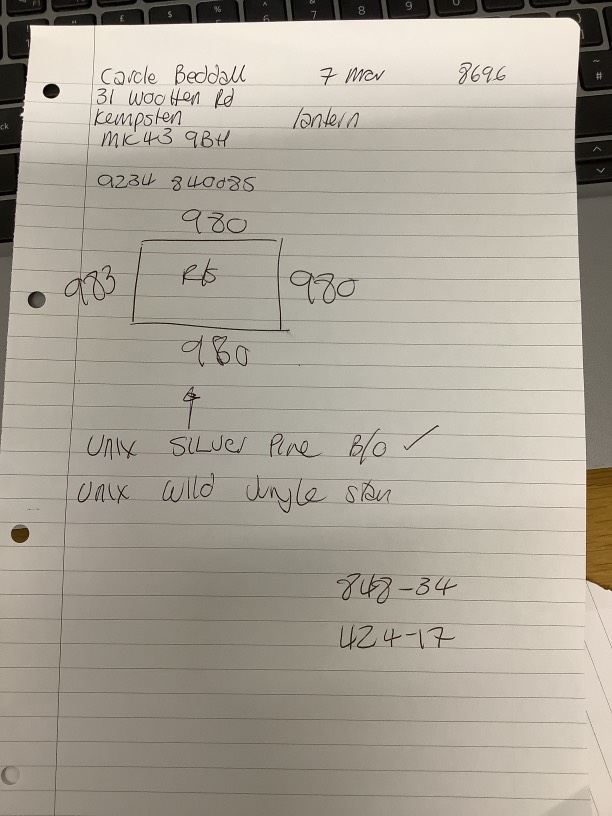 Carole Beddall 7 Mar 8696
31 Wootten Rd
Kempsten lantern
MK43 9BH
0234 840085
980
983 R/S 980
980
Unix Silver Pine B/O ✓
Unix Wild Jungle Stan
848-34
424-17